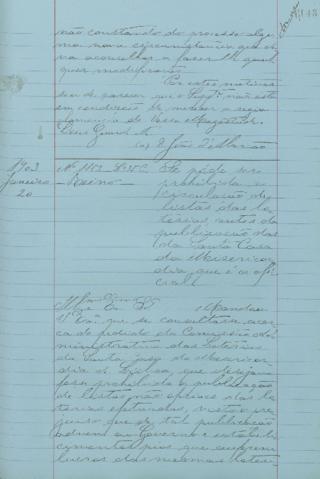 não constando do processo algu-
ma nova circunstancia que ve-
nha aconselhar a fazer-lhe qual-
quer modificação.
Por estes motivos
sou de parecer que o Supp.te não está
em condições de merecer a regia
clemencia de Vossa Magestade.
Deus Guarde
(a) João d'Alarcão
1903
Janeiro
20
Reino
Se pode ser
prohibida a
circulação de
listas das lo-
terias antes da
publicação das
da Santa Casa
da Misericor-
dia, que é a offi-
cial
Mandou
V. Ex.ª que se consultasse acer-
ca do pedido da Commissão Ad-
ministrativa das Loterias
da Santa Casa da Misericor-
dia de Lisboa, que deseja
fosse prohibida a publicação
de listas não officiaes das lo-
terias efectuadas, visto o pre-
juizo que de tal publicação
advem ao Governo e estabele-
cimentos pios que
lucros das mesmas loter